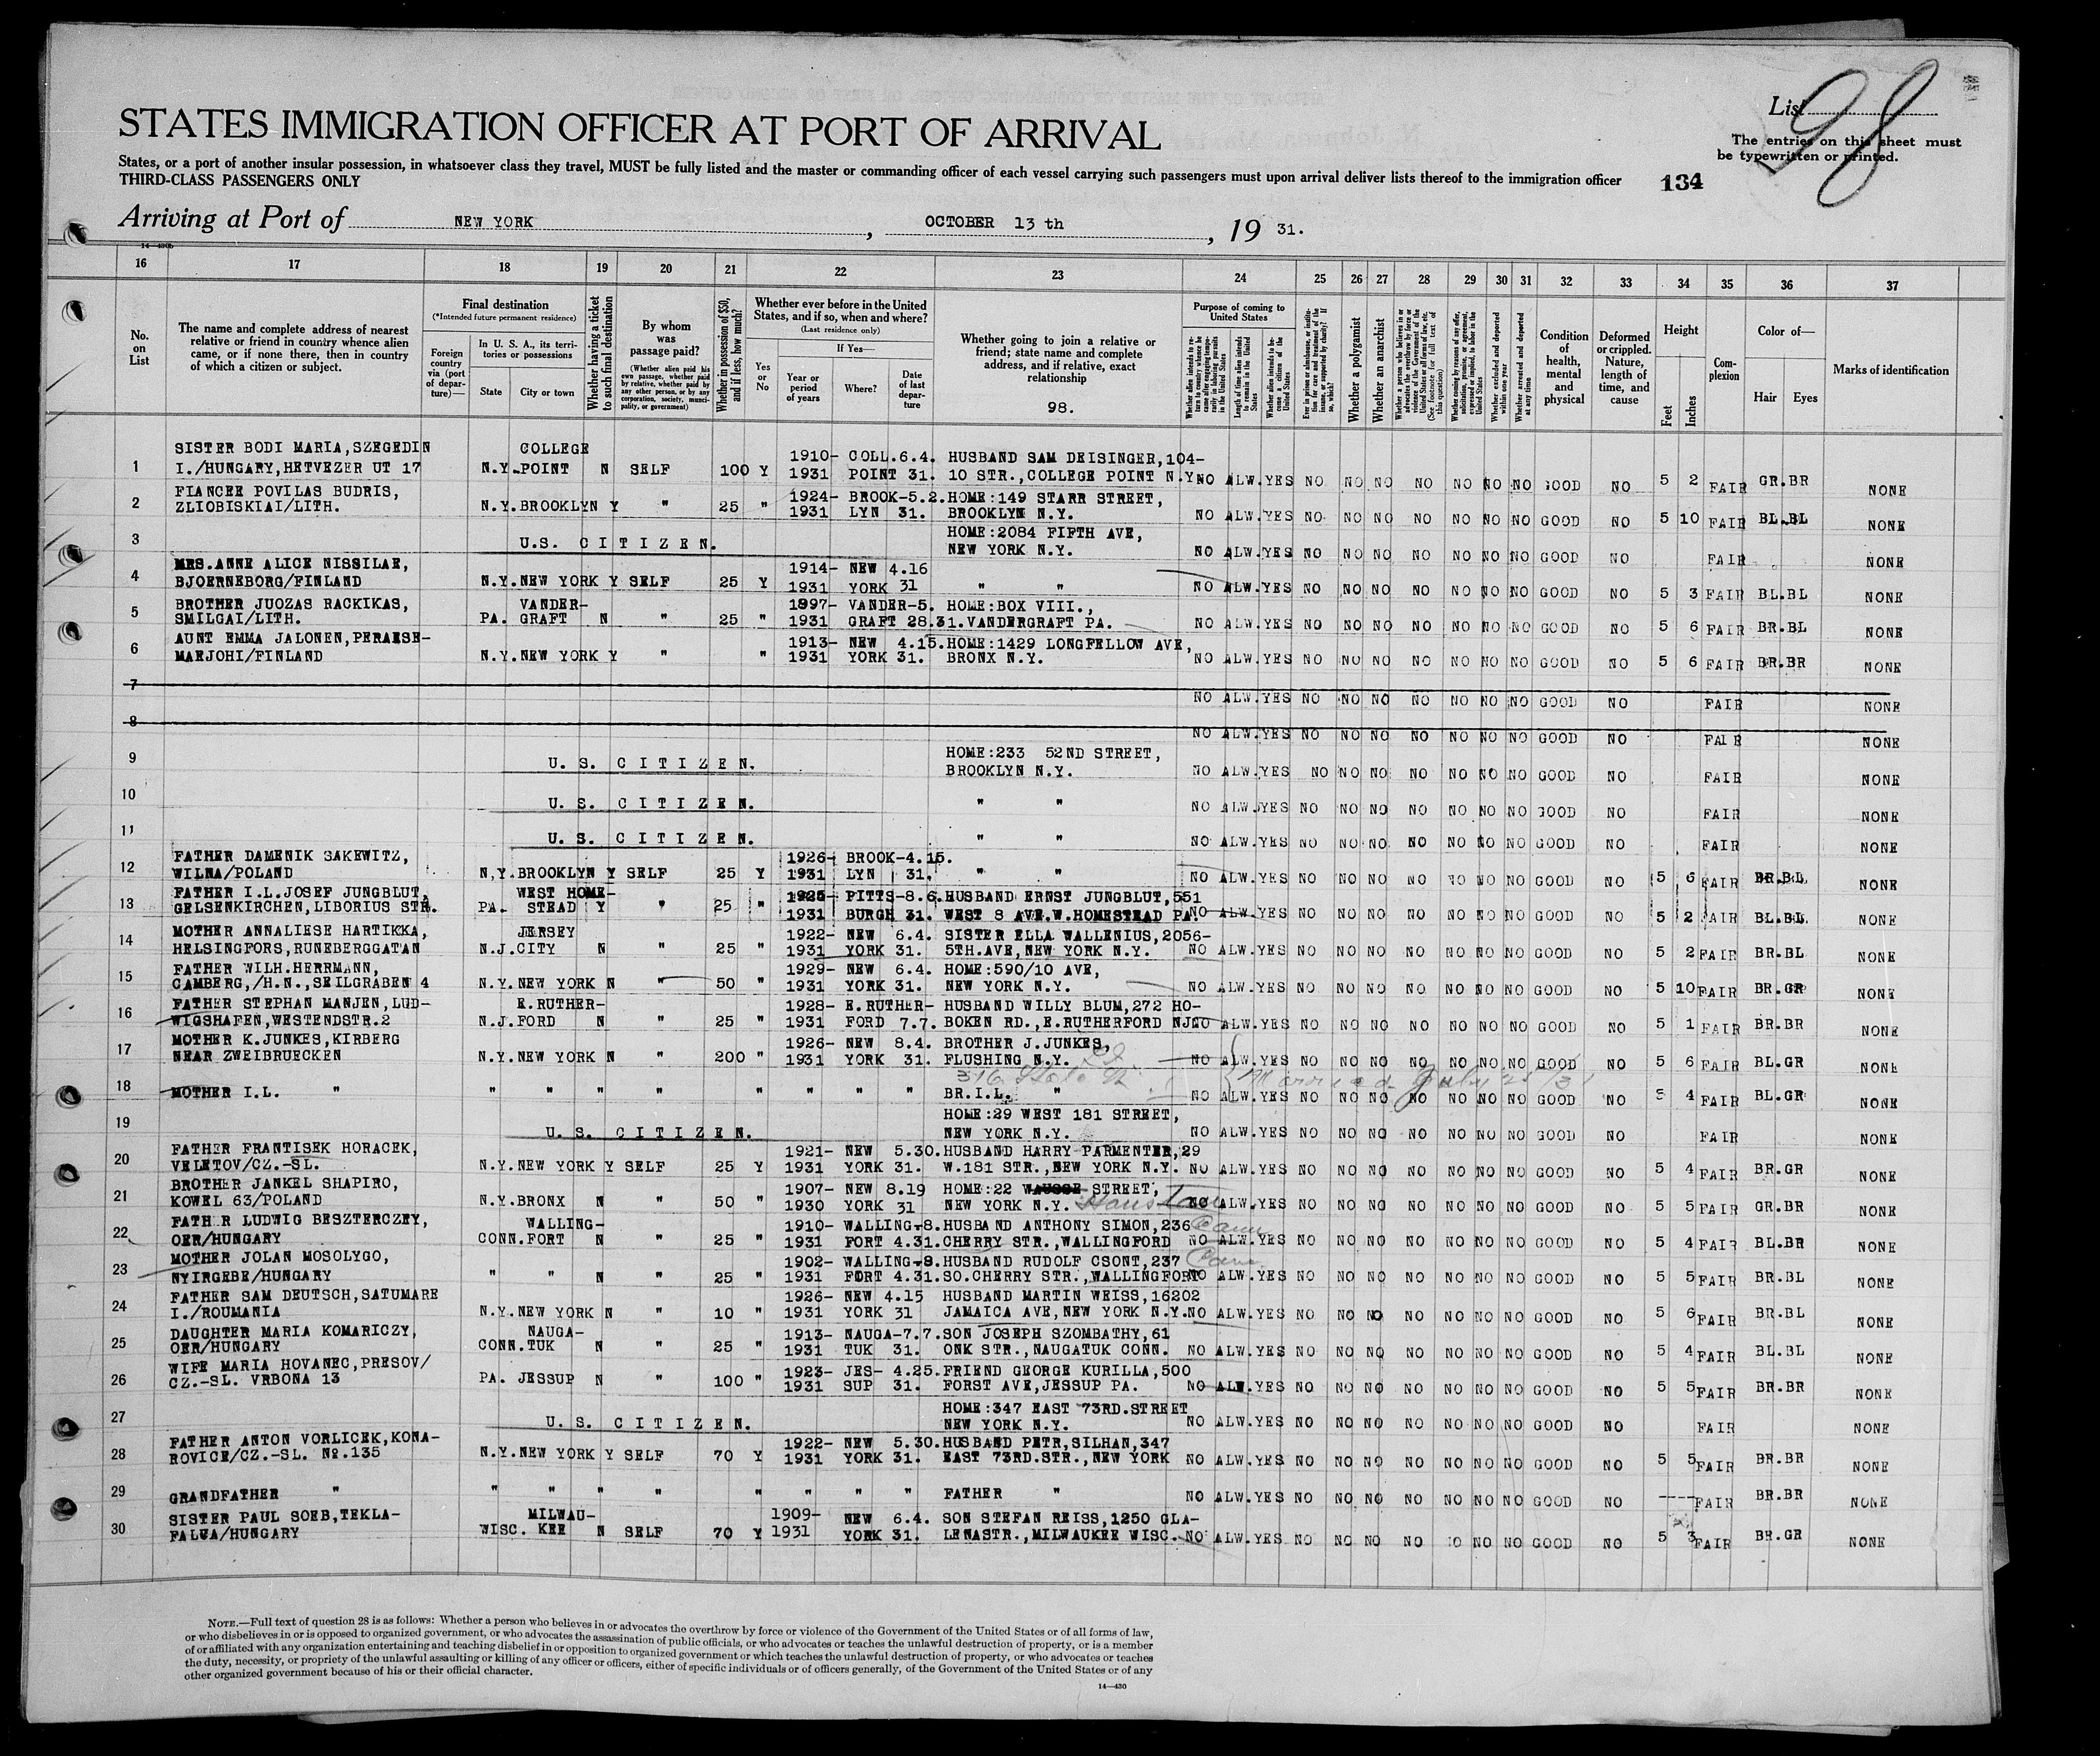 List 98
STATES IMMIGRATION OFFICER AT PORT OF ARRIVAL
The entries on this sheet must
be typewritten or printed.
States, or a port of another insular possession, in whatsoever class they travel, MUST be fully listed and the master or commanding officer of each vessel carrying such passengers must upon arrival deliver lists thereof to the immigration officer
THIRD-CLASS PASSENGERS ONLY
134
Arriving at Port of NEW YORK, OCTOBER 13 th, 19 31.
14—430b
16 17 18 19 20 21 22 23 24 25 26 27 28 29 30 31 32 33 34 35 36 37
No. on List
The name and complete address of nearest relative or friend in country whence alien came, or if none there, then in country of which a citizen or subject.
Final destination
(*Intended future permanent residence)
Foreign country via (port of departure)—
In U. S. A., its territories or possessions
State City or town
Whether having a ticket to such final destination
By whom was passage paid?
(Whether alien paid his own passage, whether paid by relative, whether paid by any other person, or by any corporation, society, municipality, or government)
Whether in possession of $50, and if less, how much?
Whether ever before in the United States, and if so, when and where?
(Last residence only)
Yes or No
If Yes—
Year or period of years
Where?
Date of last departure
Whether going to join a relative or friend; state name and complete address, and if relative, exact relationship
98.
Purpose of coming to United States
Whether alien intends to return to country whence he came after engaging temporarily in laboring pursuits in the United States
Length of time alien intends to remain in the United States
Whether alien intends to become a citizen of the United States
Ever in prison or almshouse, or institution for care and treatment of the insane, or supported by charity? If so, which?
Whether a polygamist
Whether an anarchist
Whether a person who believes in or advocates the overthrow by force or violence of the Government of the United States or all forms of law, etc. (See footnote for full text of this question)
Whether coming by reason of any offer, solicitation, promise, or agreement, expressed or implied, to labor in the United States
Whether excluded and deported within one year
Whether arrested and deported at any time
Condition of health, mental and physical
Deformed or crippled. Nature, length of time, and cause
Height
Feet Inches
Complexion
Color of—
Hair Eyes
Marks of identification
SISTER BODI MARIA,SZEGEDIN COLLEGE 1910- COLL.6.4. HUSBAND SAM DEISINGER,104-
1 I./HUNGARY,HETVEZER UT 17 N.Y. POINT N SELF 100 Y 1931 POINT 31. 10 STR.,COLLEGE POINT N.Y. NO ALW. YES NO NO NO NO NO NO NO GOOD NO 5 2 FAIR GR.BR NONE
FIANCEE POVILAS BUDRIS, 1924- BROOK-5.2. HOME:149 STARR STREET,
2 ZLIOBISKIAI/LITH. N.Y. BROOKLYN Y " 25 " 1931 LYN 31. BROOKLYN N.Y. NO ALW. YES NO NO NO NO NO NO NO GOOD NO 5 10 FAIR BL.BL NONE
HOME:2084 FIFTH AVE,
3 U.S. CITIZEN. NEW YORK N.Y. NO ALW. YES NO NO NO NO NO NO NO GOOD NO FAIR NONE
MRS.ANNE ALICE NISSILAE, 1914- NEW 4.16
4 BJOERNEBORG/FINLAND N.Y. NEW YORK Y SELF 25 Y 1931 YORK 31 " " NO ALW. YES NO NO NO NO NO NO NO GOOD NO 5 3 FAIR BL.BL NONE
BROTHER JUOZAS RACKIKAS, VANDER- 1897- VANDER-5. HOME:BOX VIII.,
5 SMILGAI/LITH. PA. GRAFT N " 25 " 1931 GRAFT 28.31. VANDERGRAFT PA. NO ALW. YES NO NO NO NO NO NO NO GOOD NO 5 6 FAIR BR.BL NONE
AUNT EMMA JALONEN,PERAESE- 1913- NEW 4.15. HOME:1429 LONGFELLOW AVE,
6 MAEJOHI/FINLAND N.Y. NEW YORK Y " " 1931 YORK 31. BRONX N.Y. NO ALW. YES NO NO NO NO NO NO NO GOOD NO 5 6 FAIR BR.BR NONE
7 NO ALW. YES NO NO NO NO NO NO NO GOOD NO FAIR NONE
8 NO ALW. YES NO NO NO NO NO NO NO GOOD NO FAIR NONE
HOME:233 52ND STREET,
9 U. S. CITIZEN. BROOKLYN N.Y. NO ALW. YES NO NO NO NO NO NO NO GOOD NO FAIR NONE
10 U. S. CITIZEN. " " NO ALW. YES NO NO NO NO NO NO NO GOOD NO FAIR NONE
11 U. S. CITIZEN. " " NO ALW. YES NO NO NO NO NO NO NO GOOD NO FAIR NONE
FATHER DAMENIK SAKEWITZ, 1926- BROOK-4.15.
12 WILNA/POLAND N,Y. BROOKLYN Y SELF 25 Y 1931 LYN 31. " " NO ALW. YES NO NO NO NO NO NO NO GOOD NO 5 6 FAIR BR.BL NONE
FATHER I.L.JOSEF JUNGBLUT, WEST HOME- 1925- PITTS-8.6. HUSBAND ERNST JUNGBLUT,551
13 GELSENKIRCHEN,LIBORIUS STR. PA. STEAD Y " 25 " 1931 BURGH 31. WEST 8 AVE.W.HOMESTEAD PA. NO ALW. YES NO NO NO NO NO NO NO GOOD NO 5 2 FAIR BL.BL NONE
MOTHER ANNALIESE HARTIKKA, JERSEY 1922- NEW 6.4. SISTER ELLA WALLENIUS,2056-
14 HELSINGFORS,RUNEBERGGATAN N.J. CITY N " 25 " 1931 YORK 31. 5TH.AVE,NEW YORK N.Y. NO ALW. YES NO NO NO NO NO NO NO GOOD NO 5 2 FAIR BR.BL NONE
FATHER WILH.HERRMANN, 1929- NEW 6.4. HOME:590/10 AVE,
15 CAMBERG,/H.N.,SEILGRABEN 4 N.Y. NEW YORK N " 50 " 1931 YORK 31. NEW YORK N.Y. NO ALW. YES NO NO NO NO NO NO NO GOOD NO 5 10 FAIR BR.GR NONE
FATHER STEPHAN MANJEN,LUD- E.RUTHER- 1928- E.RUTHER- HUSBAND WILLY BLUM,272 HO-
16 WIGSHAFEN,WESTENDSTR.2 N.J. FORD N " 25 " 1931 FORD 7.7. BOKEN RD.,E.RUTHERFORD NJ. NO ALW. YES NO NO NO NO NO NO NO GOOD NO 5 1 FAIR BR.BR NONE
MOTHER K.JUNKES,KIRBERG 1926- NEW 8.4. BROTHER J.JUNKES,
17 NEAR ZWEIBRUECKEN N.Y. NEW YORK N " 200 " 1931 YORK 31. FLUSHING N.Y. NO ALW. YES NO NO NO NO NO NO NO GOOD NO 5 6 FAIR BL.GR NONE
316 State St Married July 25/31
18 MOTHER I.L. " " " " " " " " " BR.I.L. " NO ALW. YES NO NO NO NO NO NO NO GOOD NO 5 4 FAIR BL.GR NONE
HOME:29 WEST 181 STREET,
19 U. S. CITIZEN. NEW YORK N.Y. NO ALW. YES NO NO NO NO NO NO NO GOOD NO FAIR NONE
FATHER FRANTISEK HORACEK, 1921- NEW 5.30. HUSBAND HARRY PARMENTER,29
20 VELETOV/CZ.-SL. N.Y. NEW YORK Y SELF 25 Y 1931 YORK 31. W.181 STR.,NEW YORK N.Y. NO ALW. YES NO NO NO NO NO NO NO GOOD NO 5 4 FAIR BR.GR NONE
BROTHER JANKEL SHAPIRO, 1907- NEW 8.19 HOME:22 STREET,
21 KOWEL 63/POLAND N.Y. BRONX N " 50 " 1930 YORK 31 NEW YORK N.Y. NO ALW. YES NO NO NO NO NO NO NO GOOD NO 5 5 FAIR GR.BR NONE
FATHER LUDWIG BESZTERCZEY, WALLING- 1910- WALLING-8. HUSBAND ANTHONY SIMON,236 Conn
22 OER/HUNGARY CONN. FORT N " 25 " 1931 FORT 4.31. CHERRY STR.,WALLINGFORD NO ALW. YES NO NO NO NO NO NO NO GOOD NO 5 4 FAIR BL.BR NONE
MOTHER JOLAN MOSOLYGO, 1902- WALLING-8. HUSBAND RUDOLF CSONT,237 Conn
23 NYIRGEBE/HUNGARY " " N " 25 " 1931 FORT 4.31. SO.CHERRY STR.,WALLINGFORT NO ALW. YES NO NO NO NO NO NO NO GOOD NO 5 5 FAIR BR.BL NONE
FATHER SAM DEUTSCH,SATUMARE 1926- NEW 4.15 HUSBAND MARTIN WEISS,16202
24 I./ROUMANIA N.Y. NEW YORK N " 10 " 1931 YORK 31 JAMAICA AVE,NEW YORK N.Y. NO ALW. YES NO NO NO NO NO NO NO GOOD NO 5 6 FAIR BR.BL NONE
DAUGHTER MARIA KOMARICZY, NAUGA- 1913- NAUGA-7.7. SON JOSEPH SZOMBATHY,61
25 OER/HUNGARY CONN. TUK N " 25 " 1931 TUK 31. ONK STR.,NAUGATUK CONN. NO ALW. YES NO NO NO NO NO NO NO GOOD NO 5 4 FAIR BL.BL NONE
WIFE MARIA HOVANEC,PRESOV/ 1923- JES- 4.25. FRIEND GEORGE KURILLA,500
26 CZ.-SL. VRBONA 13 PA. JESSUP N " 100 " 1931 SUP 31. FORST AVE,JESSUP PA. NO ALW. YES NO NO NO NO NO NO NO GOOD NO 5 5 FAIR BR.BR NONE
HOME:347 EAST 73RD.STREET
27 U. S. CITIZEN. NEW YORK N.Y. NO ALW. YES NO NO NO NO NO NO NO GOOD NO FAIR NONE
FATHER ANTON VORLICEK,KONA- 1922- NEW 5.30. HUSBAND PETR,SILHAN,347
28 ROVICE/CZ.-SL. Nº.135 N.Y. NEW YORK Y SELF 70 Y 1931 YORK 31. EAST 73RD.STR.,NEW YORK NO ALW. YES NO NO NO NO NO NO NO GOOD NO 5 5 FAIR BR.BR NONE
29 GRANDFATHER " " " " " " " " " FATHER " NO ALW. YES NO NO NO NO NO NO NO GOOD NO ---- FAIR BR.BR NONE
SISTER PAUL SOEB,TEKLA- MILWAU- 1909- NEW 6.4. SON STEFAN REISS,1250 GLA-
30 FALUA/HUNGARY WISC. KEE N SELF 70 Y 1931 YORK 31. LENASTR.,MILWAUKEE WISC. NO ALW. YES NO NO NO NO NO NO NO GOOD NO 5 3 FAIR BR.GR NONE
NOTE.—Full text of question 28 is as follows: Whether a person who believes in or advocates the overthrow by force or violence of the Government of the United States or of all forms of law,
or who disbelieves in or is opposed to organized government, or who advocates the assassination of public officials, or who advocates or teaches the unlawful destruction of property, or is a member
of or affiliated with any organization entertaining and teaching disbelief in or opposition to organized government or which teaches the unlawful destruction of property, or who advocates or teaches
the duty, necessity, or propriety of the unlawful assaulting or killing of any officer or officers, either of specific individuals or of officers generally, of the Government of the United States or of any
other organized government because of his or their official character.
14—430